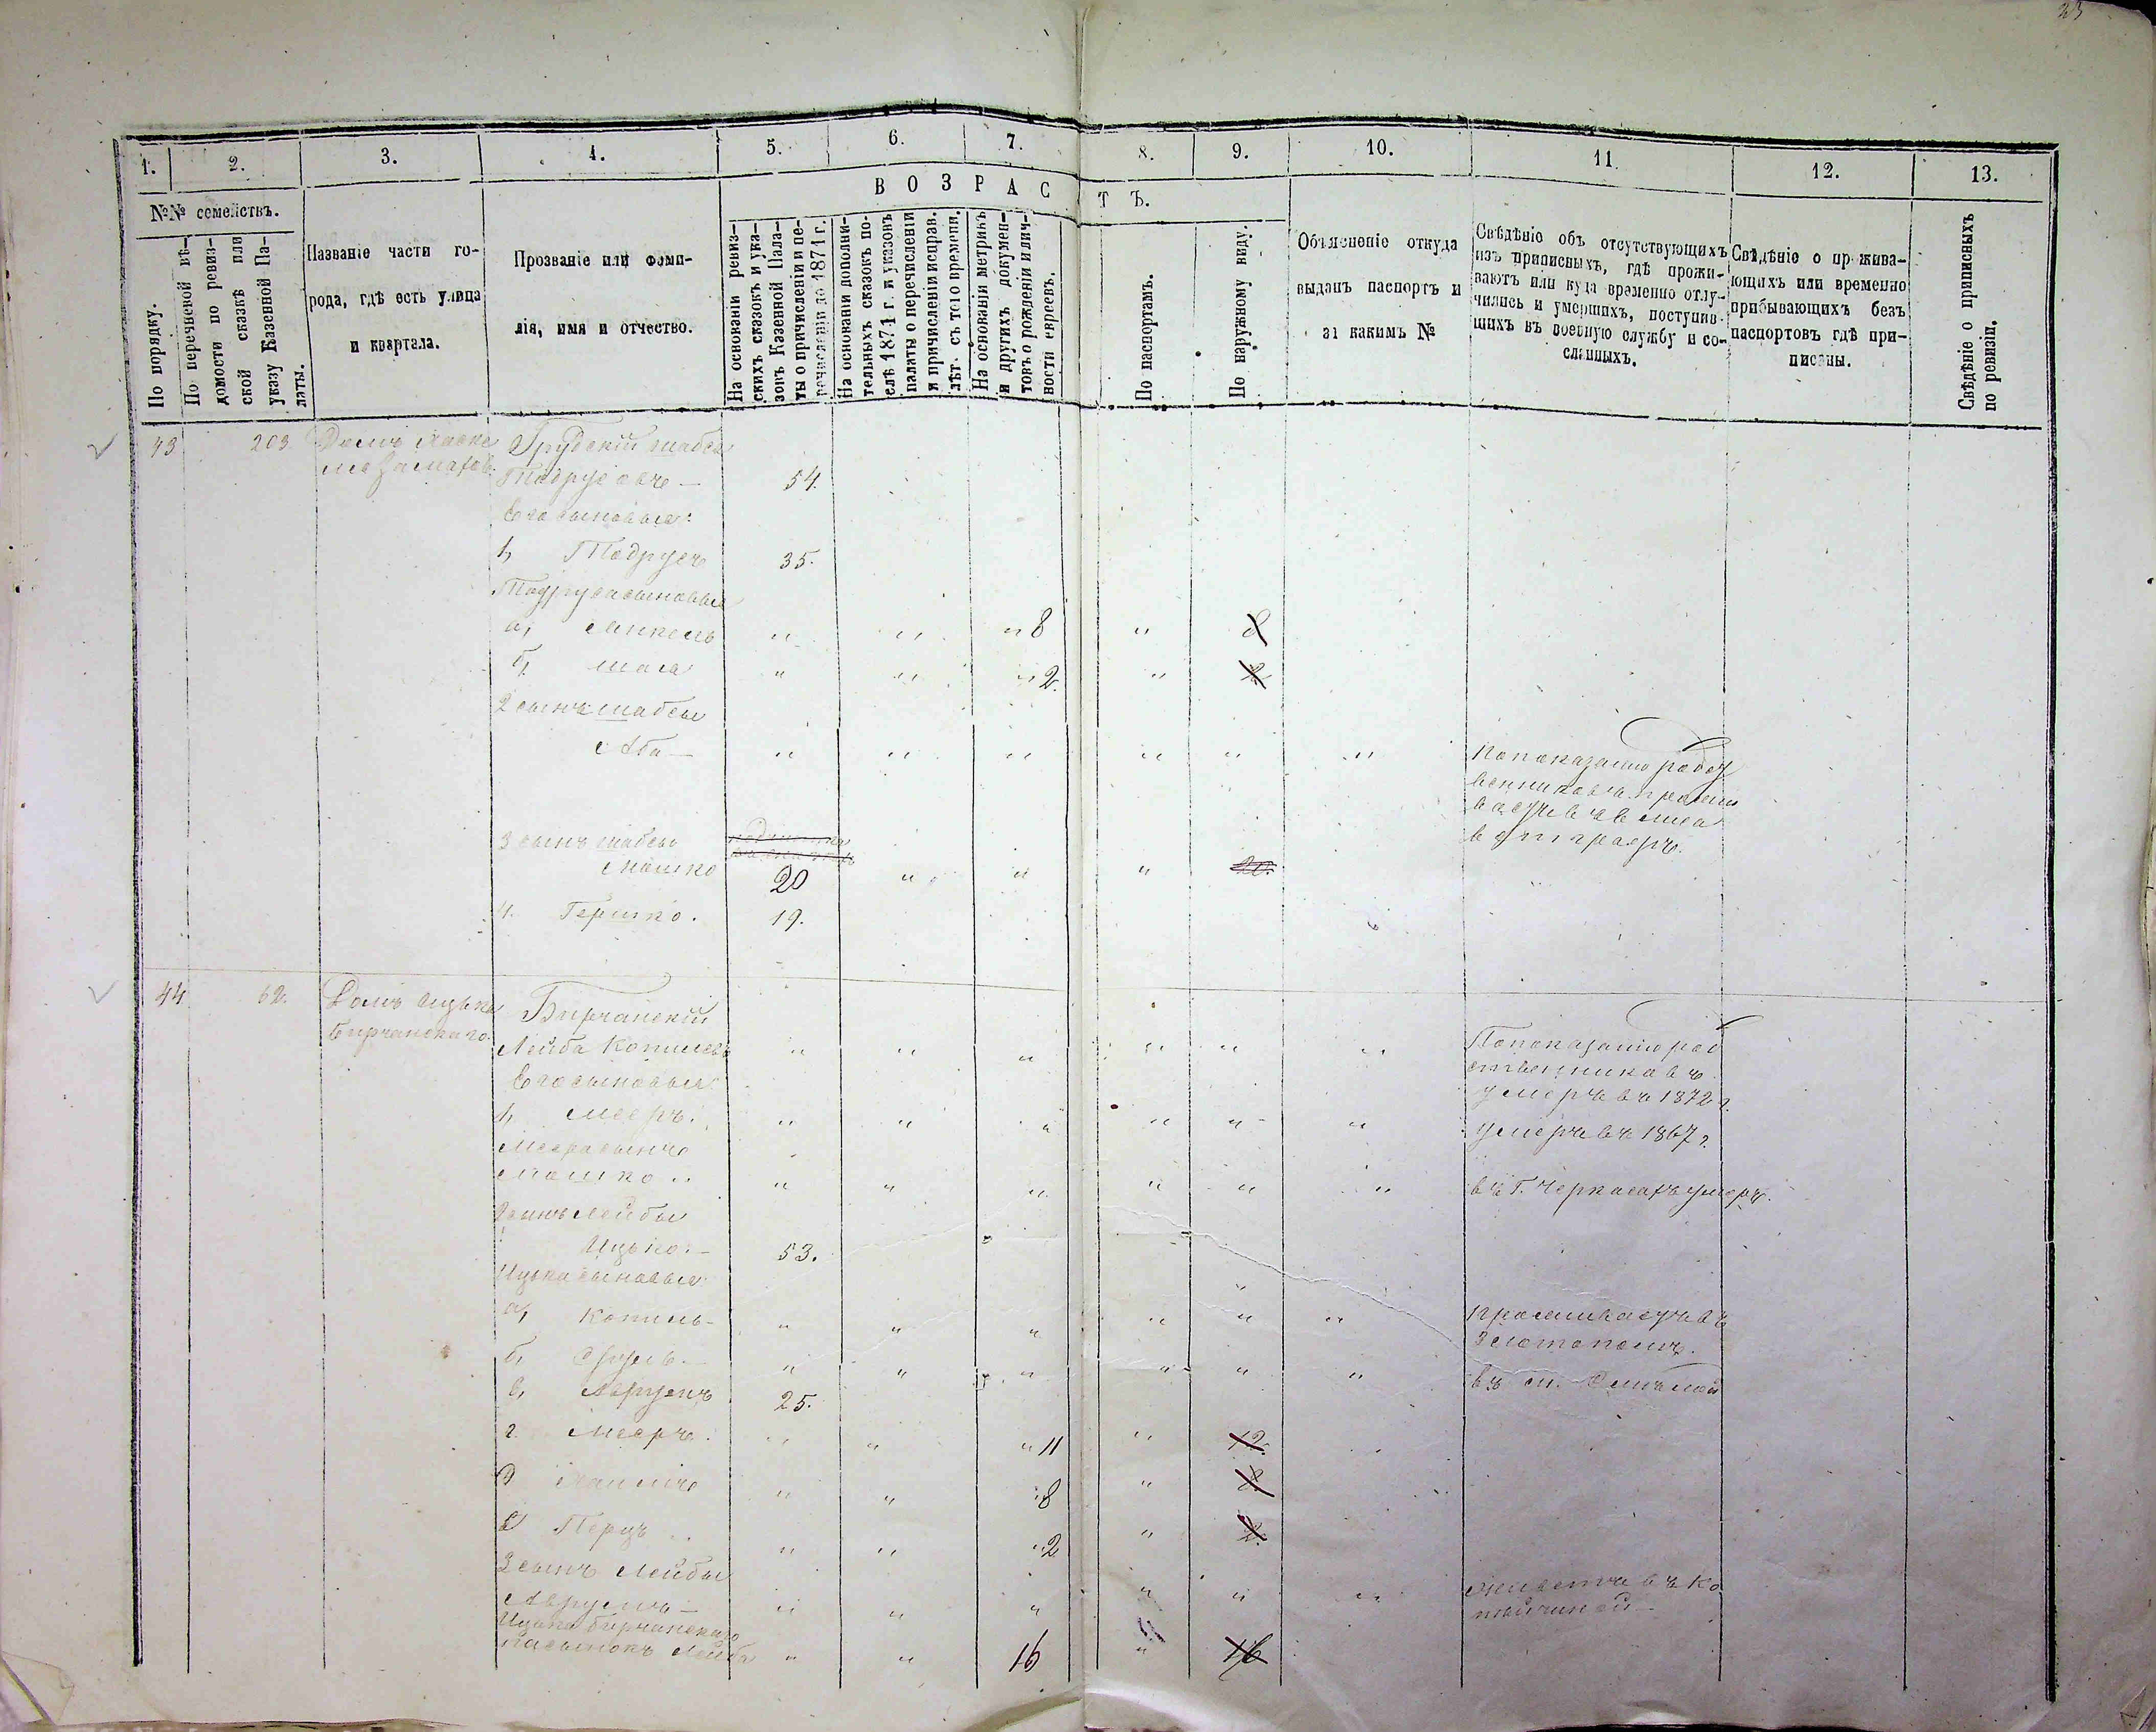 23
1. 2. 3. 4. 5. 6. 7. 8. 9. 10. 11 12. 13.
№№ семействъ.
По порядку.
По перечневой вѣ-
домости по ревиз-
ской сказкѣ или
указу Казенной Па-
латы.
Названіе части го-
рода, гдѣ есть улица
и квартала.
Прозваніе или фами-
лія, имя и отчество.
ВОЗРАСТЪ.
На основаніи ревиз-
скихъ сказокъ и ука-
зовъ Казенной Пала-
ты о причисленіи и пе-
речисленіи до 1871 г.
На основаніи дополни-
тельныхъ сказокъ по-
слѣ 1871 г. и указовъ
палаты о перечисленіи
и причисленіи исправ.
лѣт. съ того времени.
На основаніи метрикъ
и другихъ докумен-
товъ о рожденіи и лич-
ности евреевъ.
По паспортамъ.
По наружному виду.
Объясненіе откуда
выданъ паспортъ и
за какимъ №
Свѣдѣніе объ отсутствующихъ
изъ приписныхъ, гдѣ прожи-
ваютъ или куда временно отлу-
чились и умершихъ, поступив-
шихъ въ военную службу и со-
сланныхъ.
Свѣдѣніе о прожива-
ющихъ или временно
прибывающихъ безъ
паспортовъ гдѣ при-
писаны.
Свѣдѣніе о приписныхъ
по ревизіи.
43 203 Домъ Грубскій Шабса
Тодрусовъ — 54.
Его сыновья:
1, Тодрусъ 35.
Тодруса сыновья
а, Янкель " " " 8 " 8
б, Шая " " " 2. " 2
2 сынъ Шабсы
Аба — " " " " " " По показанію родст
венниковъ прожи
ваетъ въ
3 сынъ Шабсы
Мошко 20 " " " 20.
4. Гершко. 19.
44 62. Домъ Ицька Бирчанскій
Бирчанскаго. Лейба Копилевъ " " " " " " По показанію род
Его сыновья ственниковъ
умеръ въ 1872 г.
1, Мееръ. " " " " " " умеръ въ 1867 г.
Меера сынъ
Мошко " " " " " " въ г. Черкасахъ умеръ.
2 сынъ Лейбы
Ицько. — 53.
Ицька сыновья
а, Копель — " " " " " " проживаетъ въ
Златополѣ.
б, Сруль — " " " " " " въ м.
в, Аврумъ 25.
г. Мееръ. " " " 11 " 12.
д " " " 8 " 8.
е Перецъ " " " 2 " 2.
3 сынъ Лейбы
Аврумъ — " " " " " " живетъ въ Ко
Ицька Бирчанскаго
пасынокъ Лейба " " 16 " 16